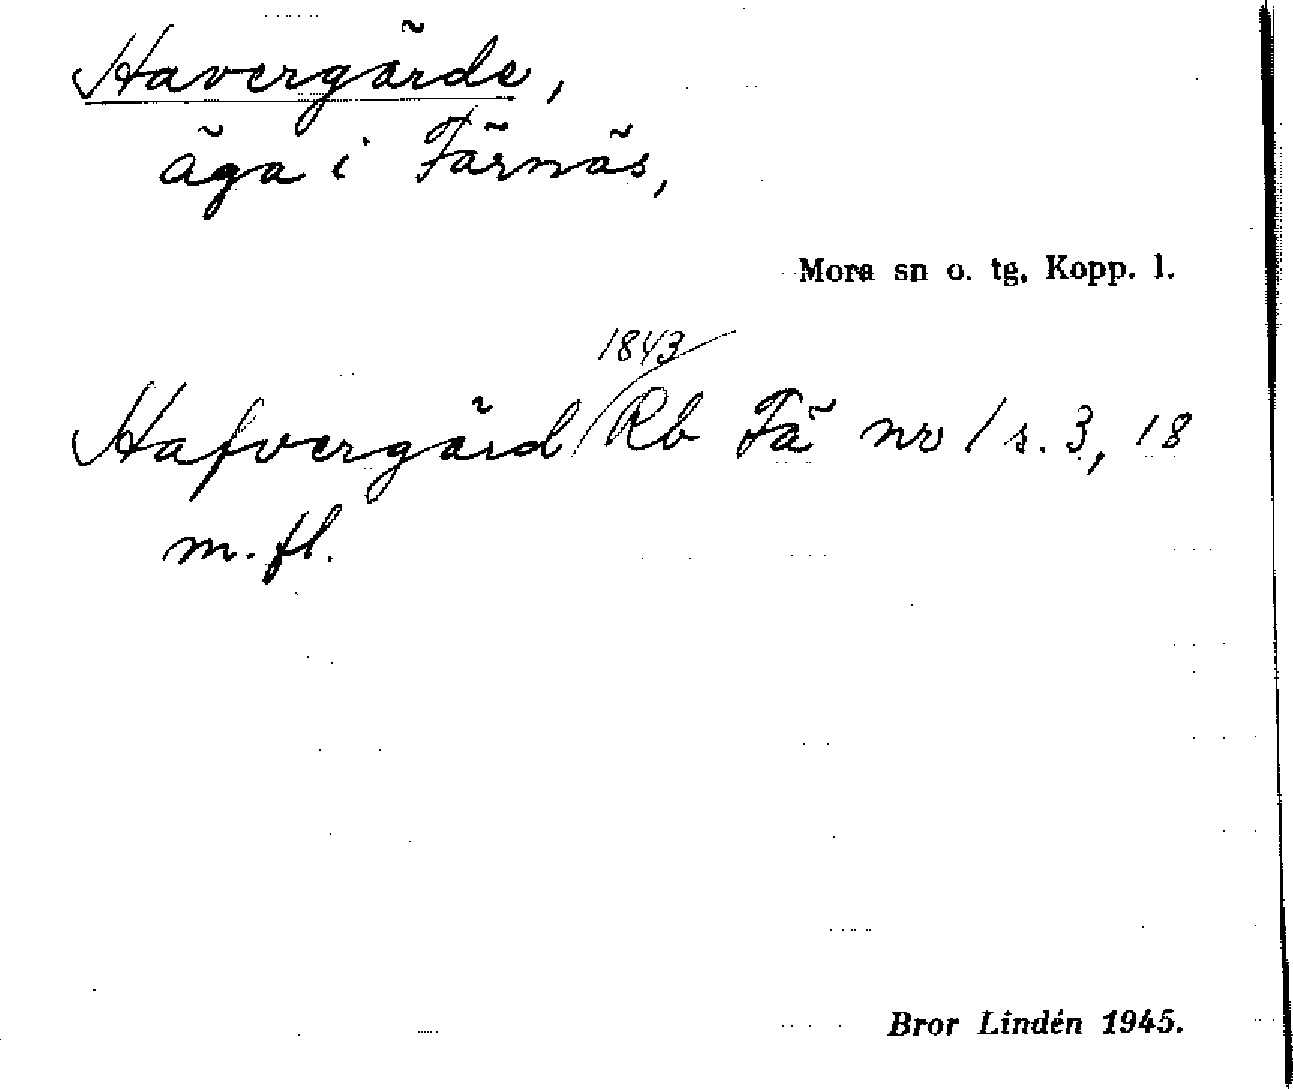 Havergärde,
äga i Färnäs,
Mora sn o. tg, Kopp. l.
1843
Hafvergärd/ Rb Fä nr 1 s. 3, 18
m. fl.
Bror Lindén 1945.